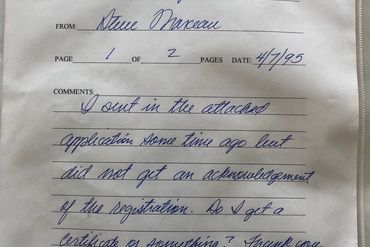 FROM Steve
PAGE 1 OF 2 PAGES DATE: 4/7/95
COMMENTS:
I sent in the attached
application some time ago but
did not get an acknowledgement
of the registration. Do I get a
certificate or something? Thank you